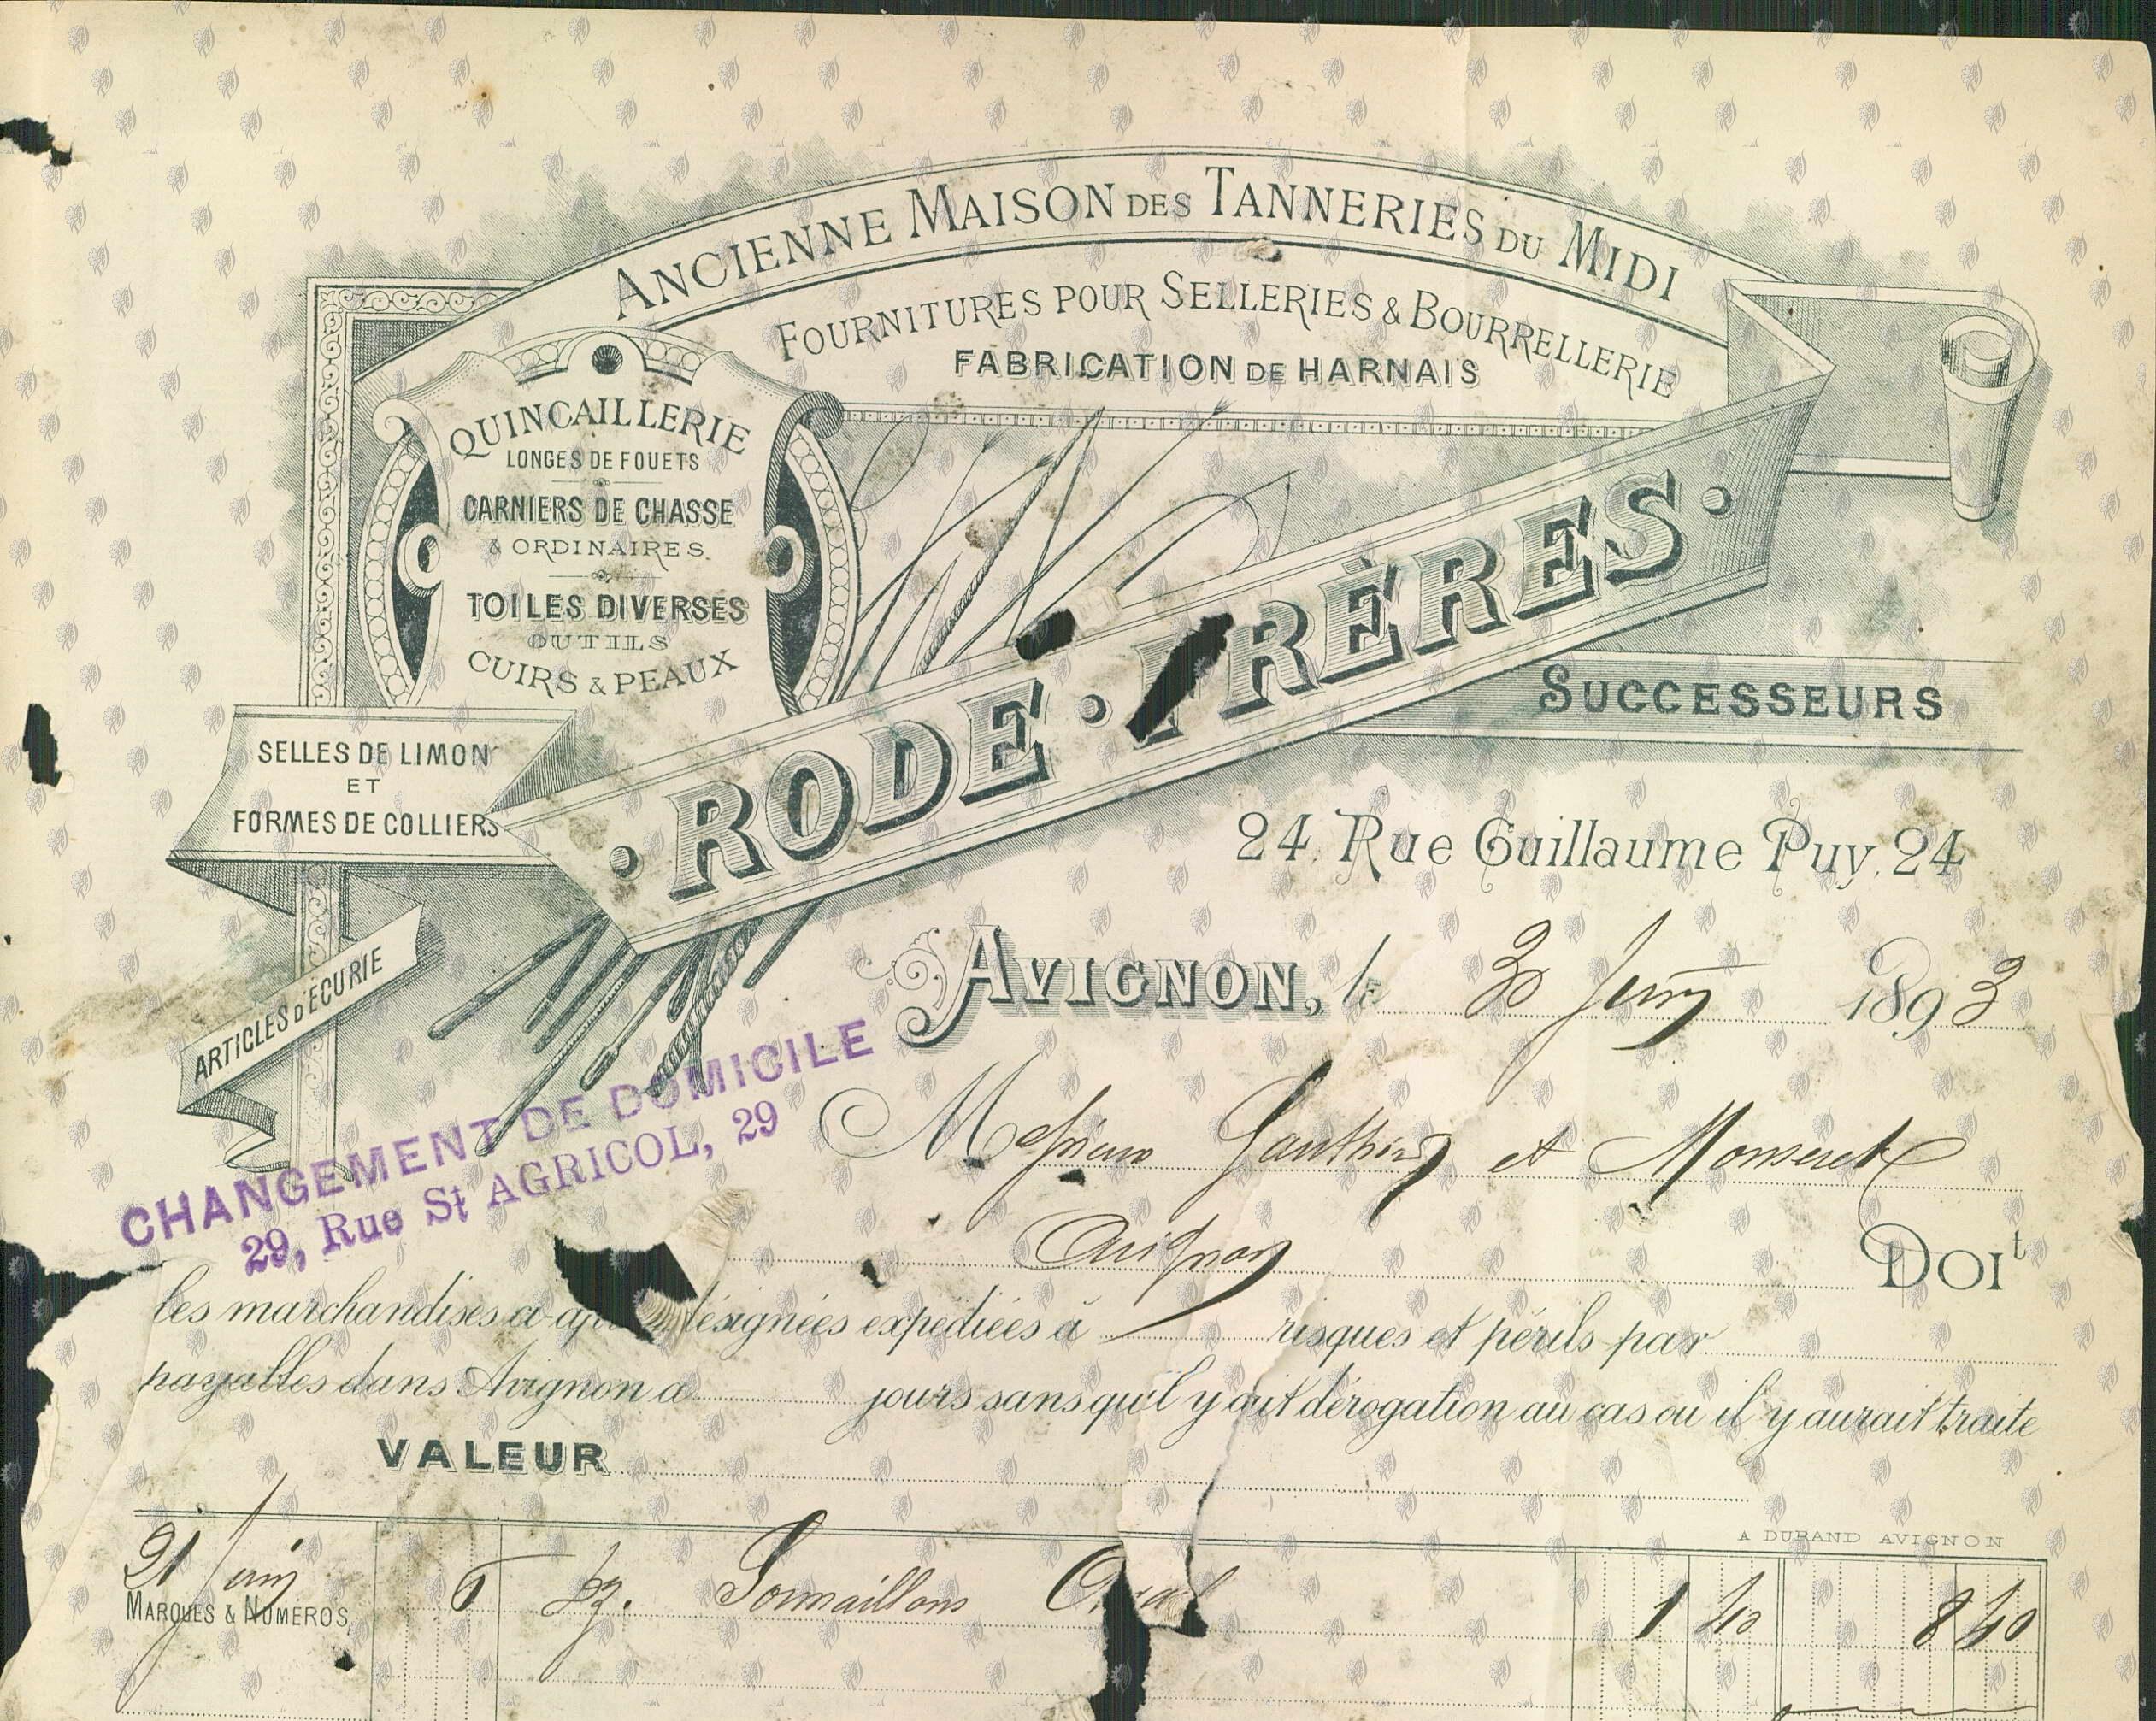 ANCIENNE MAISON DES TANNERIES DU MIDI
FOURNITURES POUR SELLERIES & BOURRELLERIE
FABRICATION DE HARNAIS
QUINCAILLERIE
LONGES DE FOUETS
CARNIERS DE CHASSE
& ORDINAIRES.
TOILES DIVERSES
OUTILS
CUIRS & PEAUX
SELLES DE LIMON
ET
FORMES DE COLLIERS
ARTICLES D'ÉCURIE
RODE • FRÈRES
SUCCESSEURS
24, Rue Guillaume Puy, 24
AVIGNON, le 30 Juin 1893
CHANGEMENT DE DOMICILE
29, Rue St AGRICOL, 29
Messieurs Gauthier et
Avignon DOIt
les marchandises ci-après désignées expédiées à risques et périls par
payables dans Avignon à jours sans qu'il y ait dérogation au cas ou il y aurait traite
VALEUR
A DURAND AVIGNON
21 Juin 6 Dz. 1 40 8 40
MARQUES & NUMÉROS